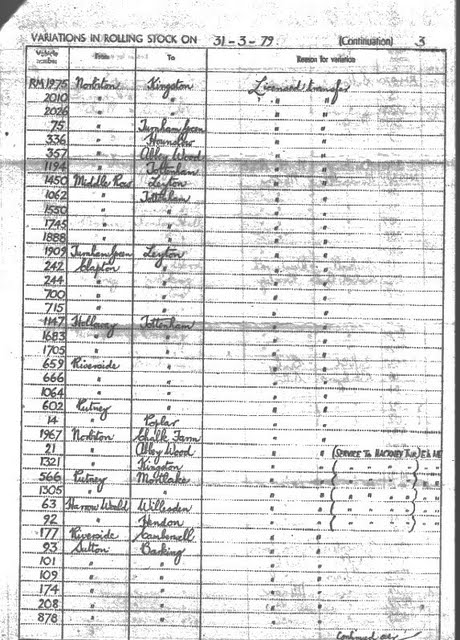 VARIATIONS IN ROLLING STOCK ON 31-3-79. (Continuation) 3
Vehicle number From To Reason for variation
RM1975 Norbiton Kingston Licensed transfer
2010 " " " "
2026 " " " "
75 " Turnham Green " "
336 " Hounslow " "
357 " Abbey Wood " "
1194 " Tottenham " "
1450 Middle Row Leyton " "
1062 " Tottenham " "
1550 " " " "
1745 " " " "
1888 " " " "
1909 Turnham Green Leyton " "
242 Clapton " " "
244 " " " "
700 " " " "
715 " " " "
1147 Holloway Tottenham " "
1683 " " " "
1705 " " " "
659 Riverside " " "
666 " " " "
1064 " " " "
602 Putney " " "
14 " Poplar " "
1967 Norbiton Chalk Farm " "
21 " Abbey Wood " " (SERVICE TO HACKNEY
1321 " Kingston " " ( " " " " )
566 Putney Mortlake " " ( " " " " )
1305 " " " " ( " " " " )
63 Harrow Weald Willesden " " ( " " " " )
92 " Hendon " " ( " " " " )
177 Riverside Camberwell " "
93 Sutton Barking " "
101 " " " "
109 " " " "
174 " " " "
208 " " " "
878 " " " "
Continued over